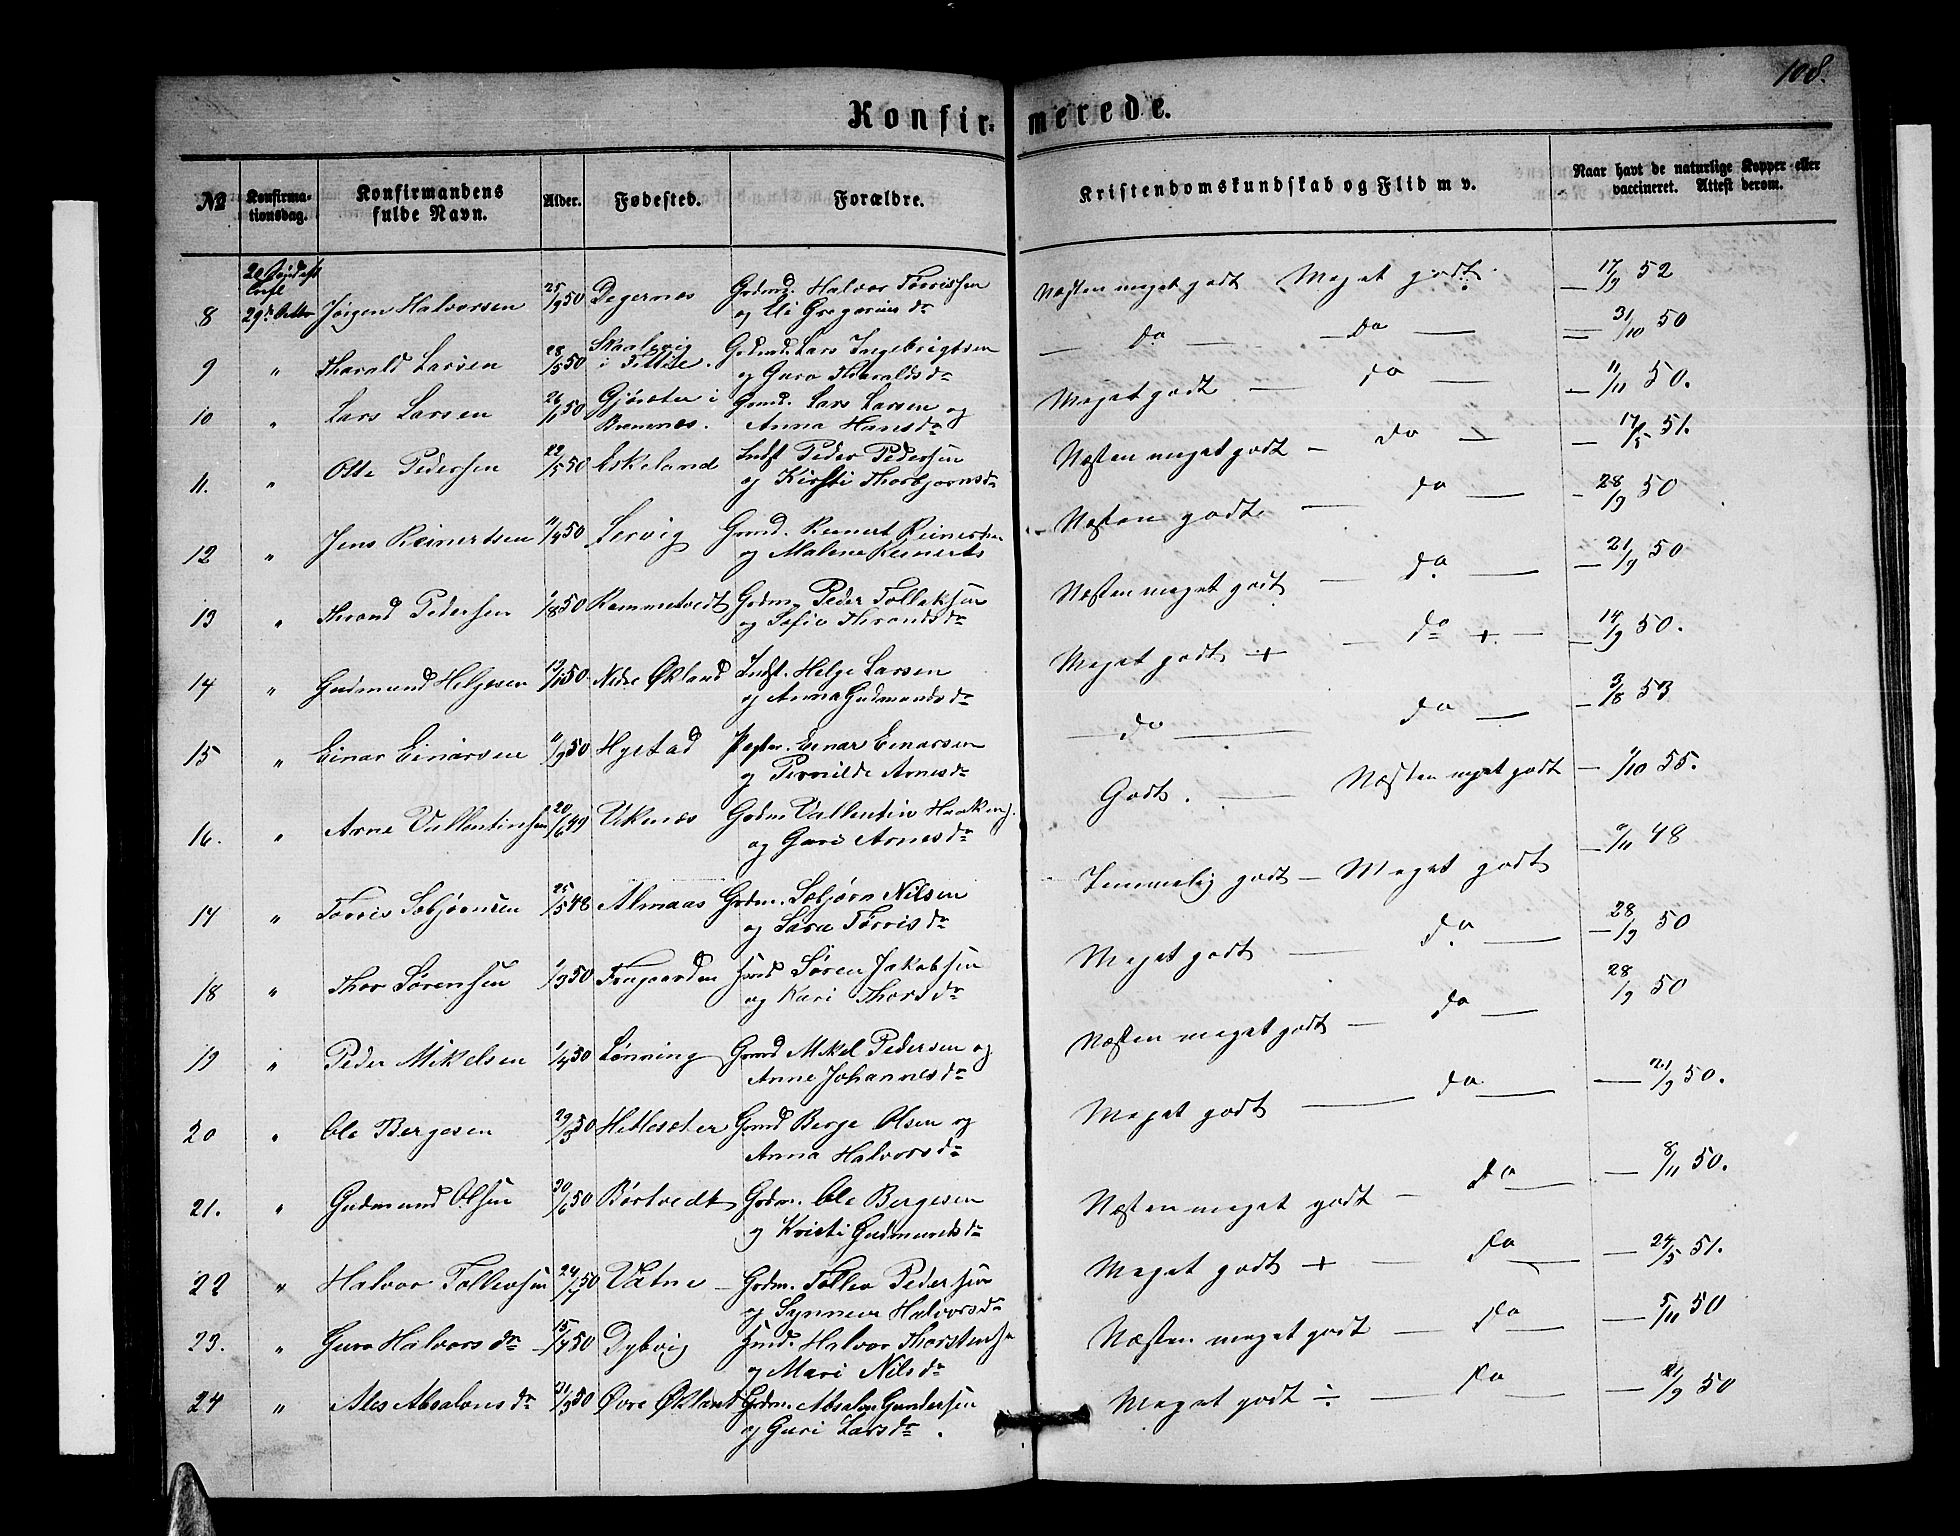 108.
Konfir- merede.
No
Konfirma-
tionsdag.
Konfirmandens
fulde Navn.
Alder.
Fødested.
Forældre.
Kristendomskundskab og Flid m v.
Naar havt de naturlige Kopper eller
vaccineret. Attest derom.
8 29de Octbr Jørgen Halvorsen 25/9 50 Degernæs Gdmd. Halvor Tørrissen
og Eli Gregorius dr
Næsten meget godt Meget godt. — 17/9 52
9 " Tharald Larsen 28/5 50 Skaalevig
i Fittie. Gdmd. Lars Ingebrigtsen
og Guro Tharalds dr
— do — — do — — 31/10 50
10 " Lars Larsen 26/1 50 Gjøsæter i
Bremnæs. Gmd. Lars Larsen og
Anna Hans dr
Meget godt — do — — 11/11 50.
11. " Otte Pedersen 22/5 50 Eskeland Indst Peder Pedersen
og Kirsti Thorbjørns dr
Næsten meget godt — do — — 17/5 51.
12 " Jens Reinertsen 11/4 50 Lervig Gmd. Reinert Reinertsen
og Malene Reinerts
Næsten godt — do — — 28/9 50
13 " Thrond Pedersen 1/8 50 Rommetvedt Gdm. Peder Tollaksen
og Sofie Thronds dr
Næsten meget godt — do — — 21/9 50
14 " Gudmund Helgesen 50 Nedre Økland Indst. Helge Larsen
og Anna Gudmunds dr
Meget godt + — do + — — 14/9 50.
15 " Einar Einarsen 11/9 50 Hystad Einar Einarsen
og Pernilde Arnes dr
— do — do — — 3/8 53
16. " Arne Vallentinsen 20/6 49 Uknæs Gdm Vallentin Haakens.
og Guri Arnes dr
Godt. — Næsten meget godt — 1/10 55.
17 " Tørris Sæbjørnsen 25/5 48 Almaas Gdm. Sæbjørn Nilsen
og Sara Tørris dr
Temmelig godt — Meget godt — 9/11 48
18 " Thor Sørensen 1/9 50 Frugaarden Søren Jakobsen
og Kari Thors dr
Meget godt — do — — 28/9 50
19 " Peder Mikelsen 1/4 50 Lønning Gmd Mikel Pedersen og
Anne Johannes dr
Næsten meget godt — do — 28/9 50
20 " Ole Bergesen 29/3 50 Hetlesæter Gmd Berge Olsen og
Anna Halvors dr
Meget godt — do — — 21/9 50.
21. " Gudmund Olsen 30/6 50 Børtvedt Gdm. Ole Bergesen
og Kristi Gudmunds dr
Næsten meget godt — do — — 8/11 50.
22 " Halvor Tollevsen 24/7 50 Vatne — Gdm. Tollev Pedersen
og Synneva Halvors dr
Meget godt + — do — — 24/5 51.
23. " Guro Halvors dr 15/7 50 Dybvig Hmd. Halvor Thorstensen
og Mari Nils dr
Næsten meget godt — do — — 5/11 50
24 " Ales Absalons dr 31/3 50 Øvre Økland Gdm. Absalon Gundersen
og Guri Lars dr.
Meget godt ÷ — do — — 21/9 50